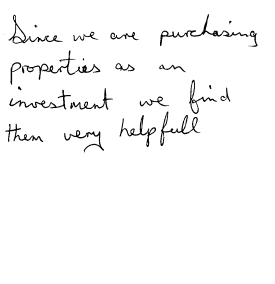 Since we are purchasing
properties as an
investment we find
them very helpfull